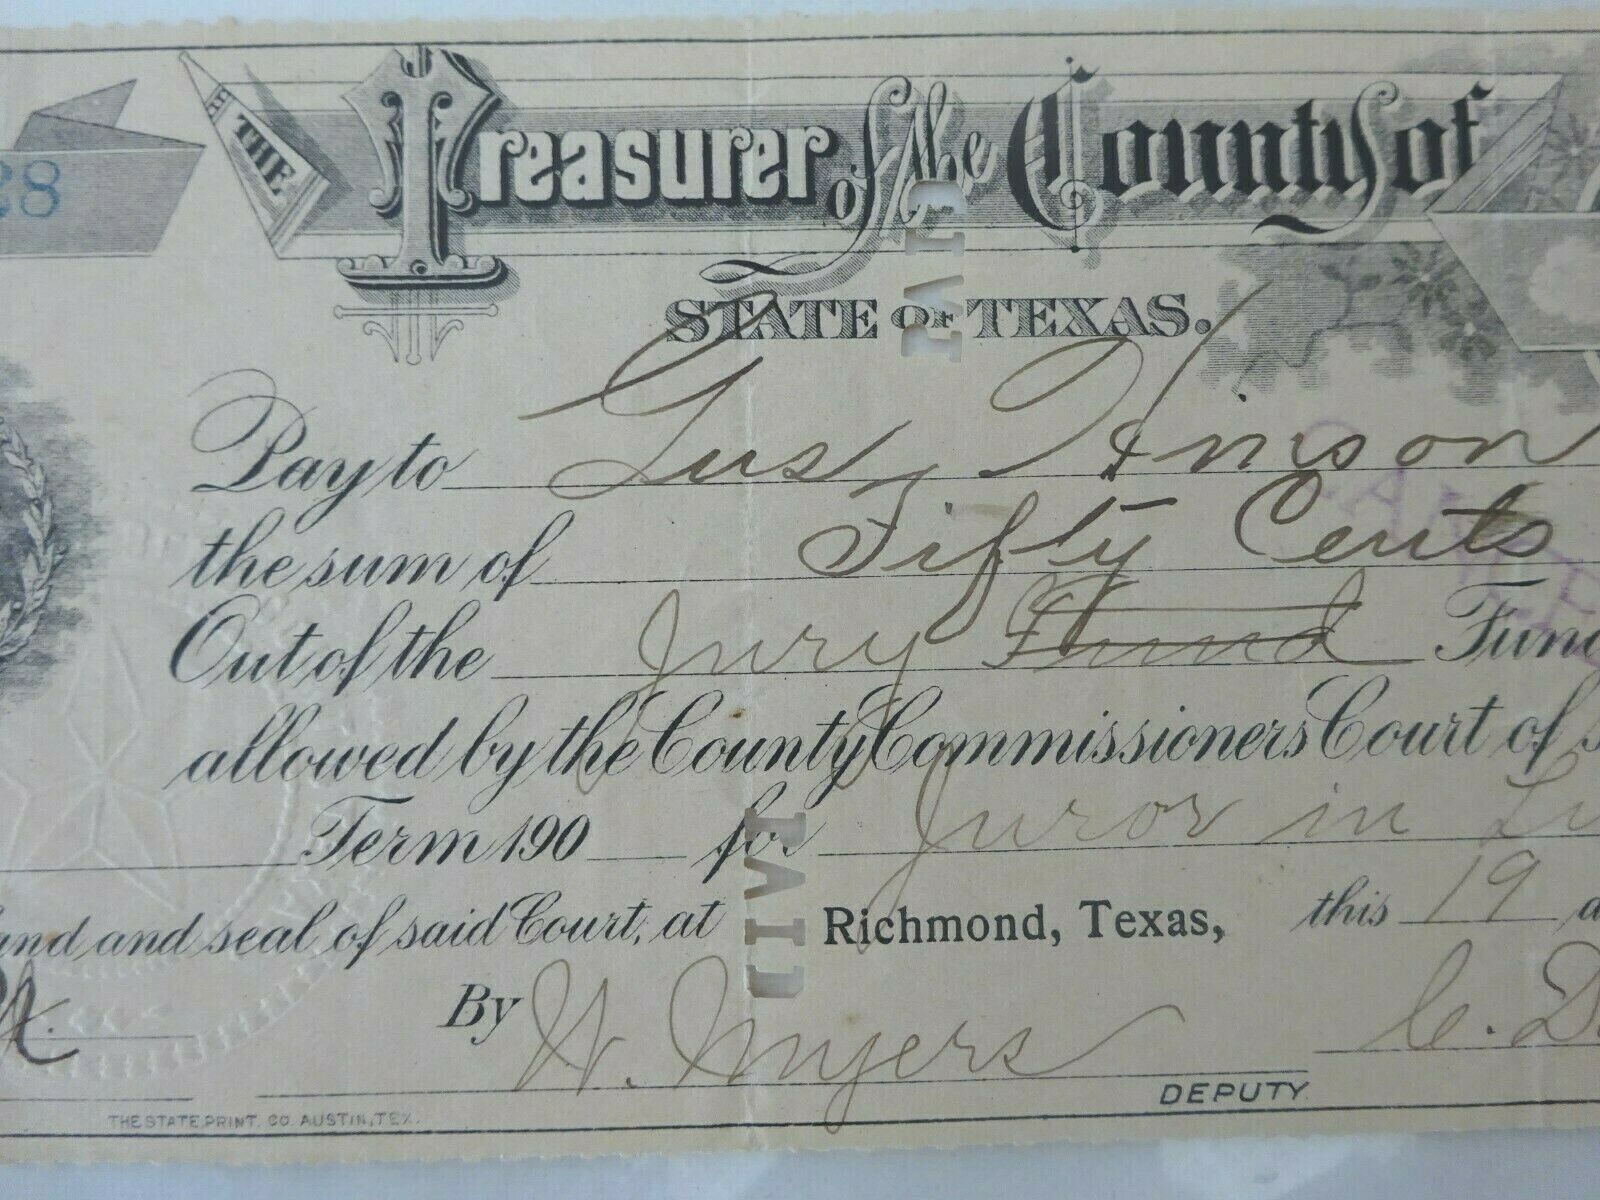 THE Treasurer of the County of
STATE OF TEXAS.
Pay to Gus Hinson
the sum of Fifty Cents
Out of the Jury Fund Fund
allowed by the County Commissioners Court of
Term 190 for Juror in
and and seal of said Court, at Richmond, Texas, this 19
By W. Myers C. D
DEPUTY.
THE STATE PRINT. CO. AUSTIN, TEX.
PAID
PAID